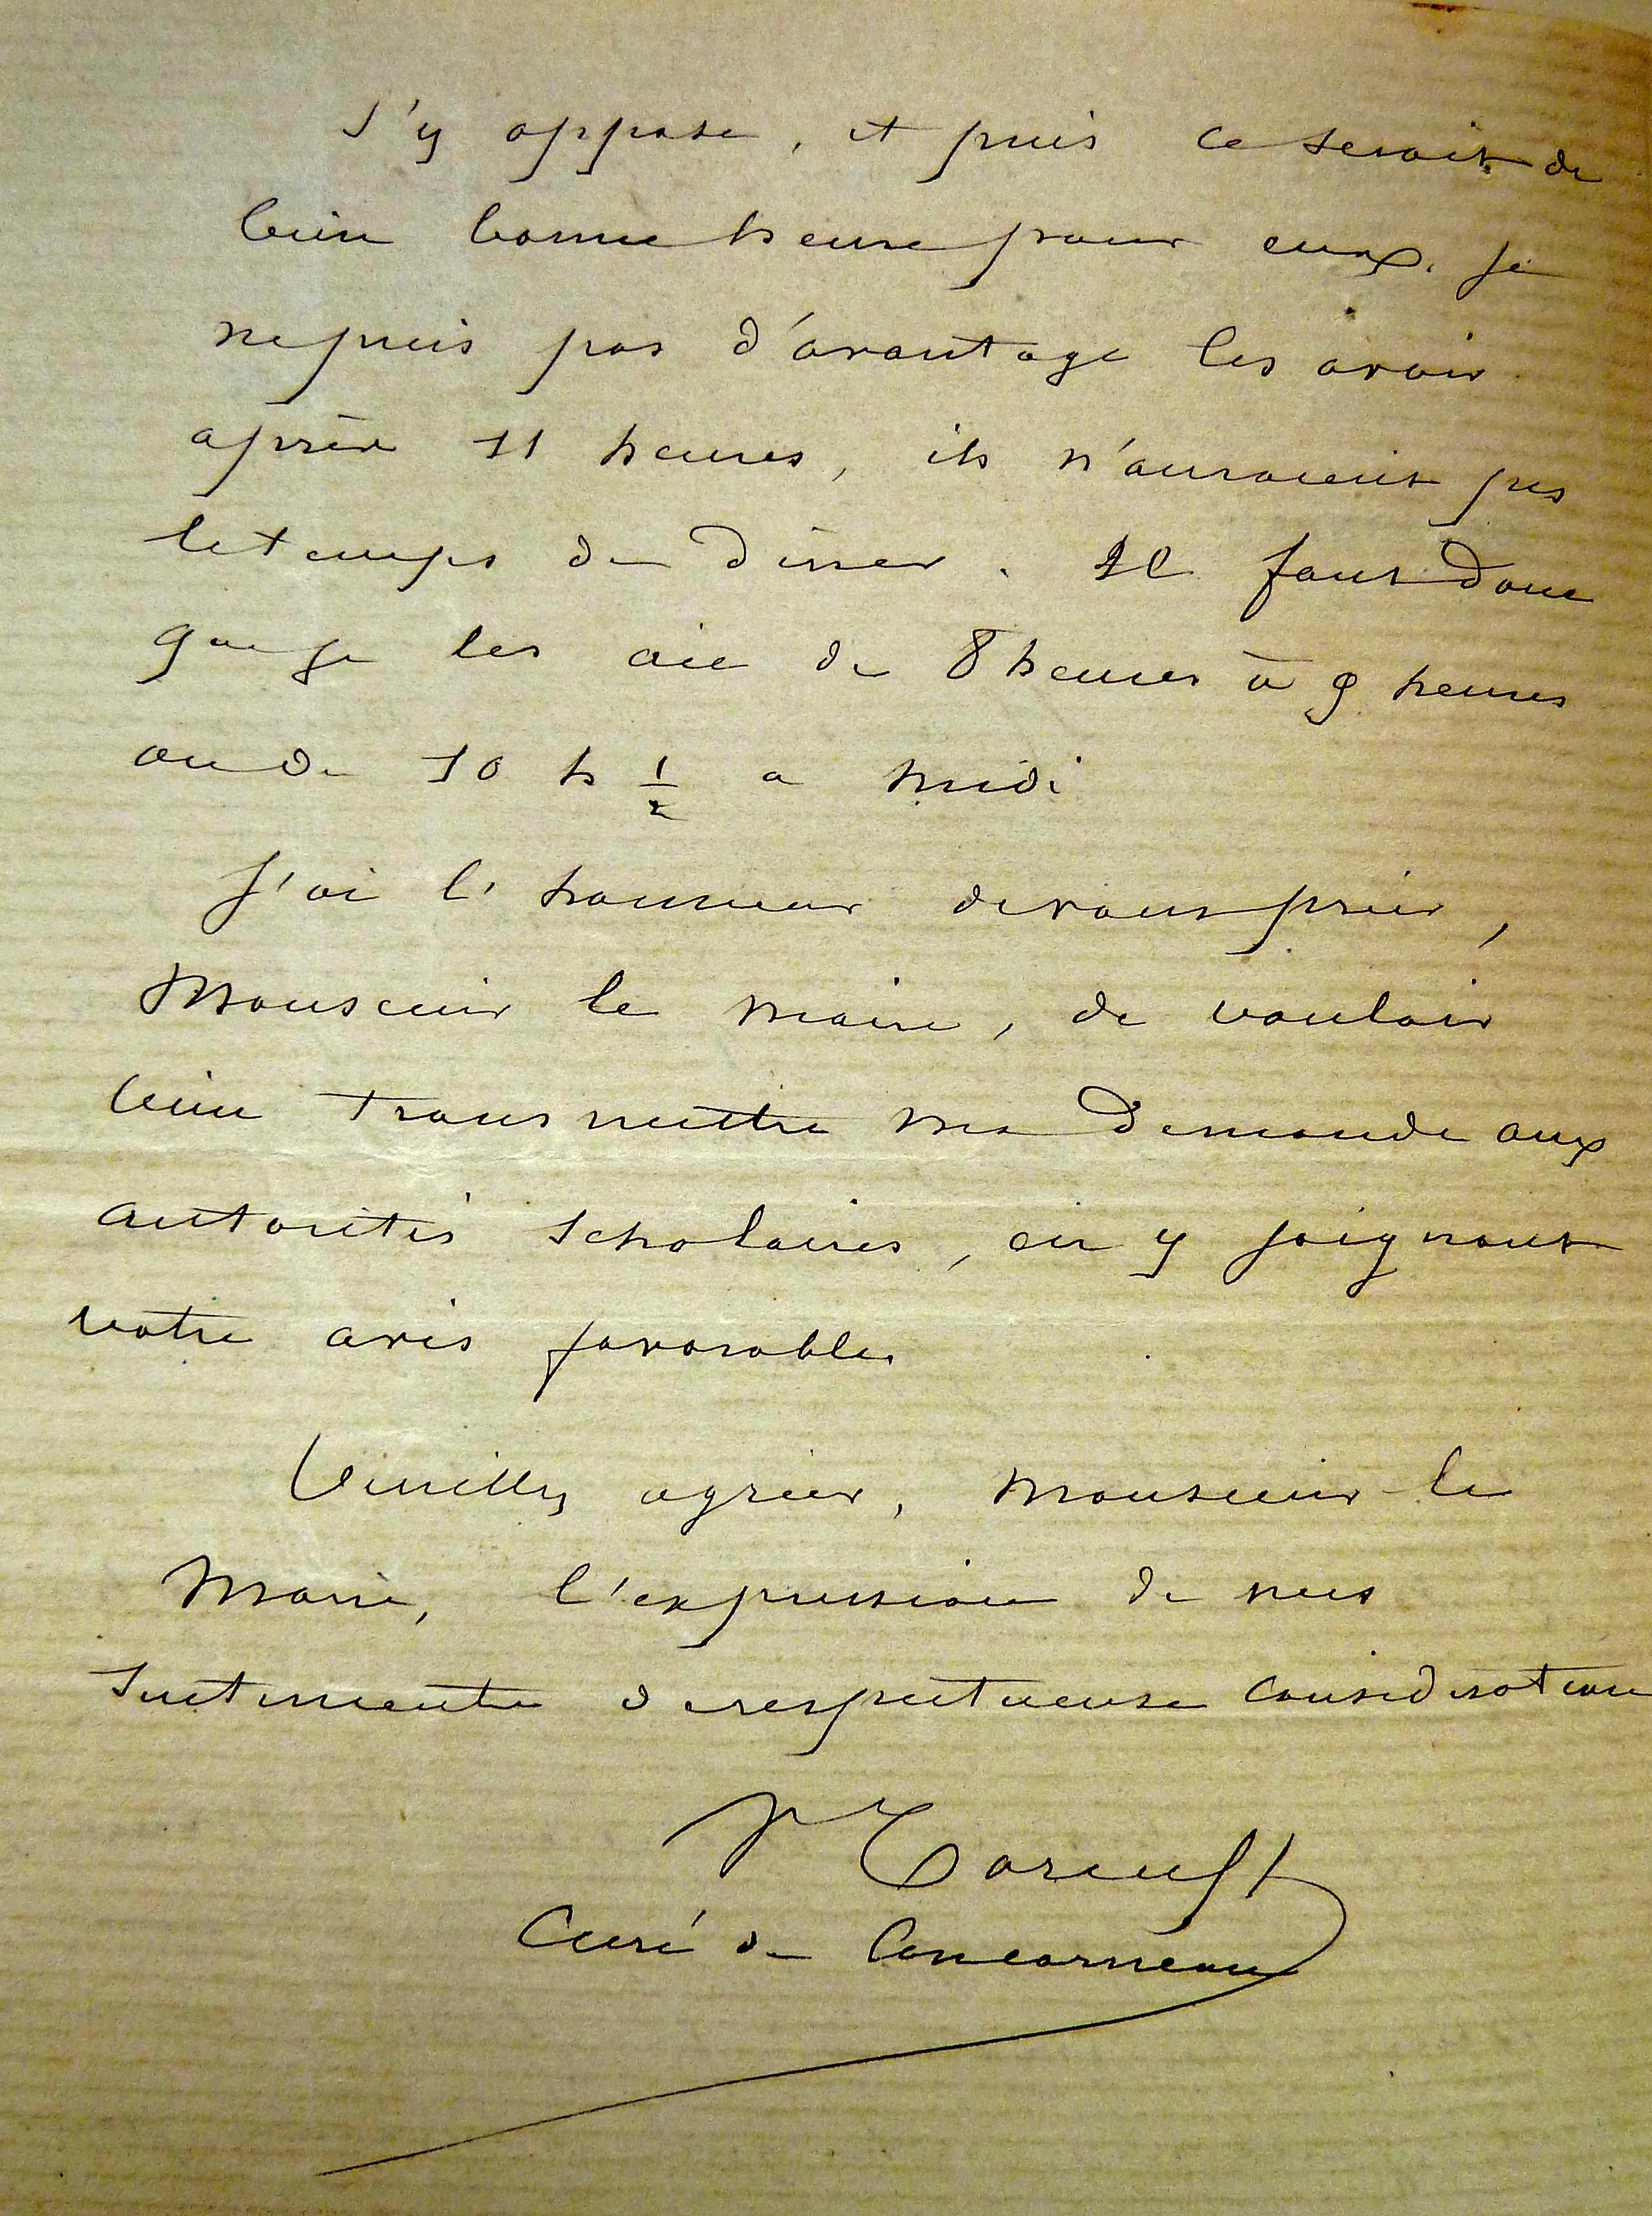 s'y oppose, et puis ce serait de
bien bonne heure pour eux. je
ne puis pas d'avantage les avoir
après 11 heures, ils n'auraient pas
le temps de diner. Il faut donc
que je les aie de 8 heures à 9 heures
ou de 10 h 1/2 a midi
J'ai l'honneur de vous prier,
Monsieur le maire, de vouloir
bien transmettre ma demande aux
autorités scholaires, en y joignant
votre avis favorable.
Veuillez agréer, Monsieur le
Maire, l'expression de mes
sentiments de respectueuse considération
Curé de Concarneau